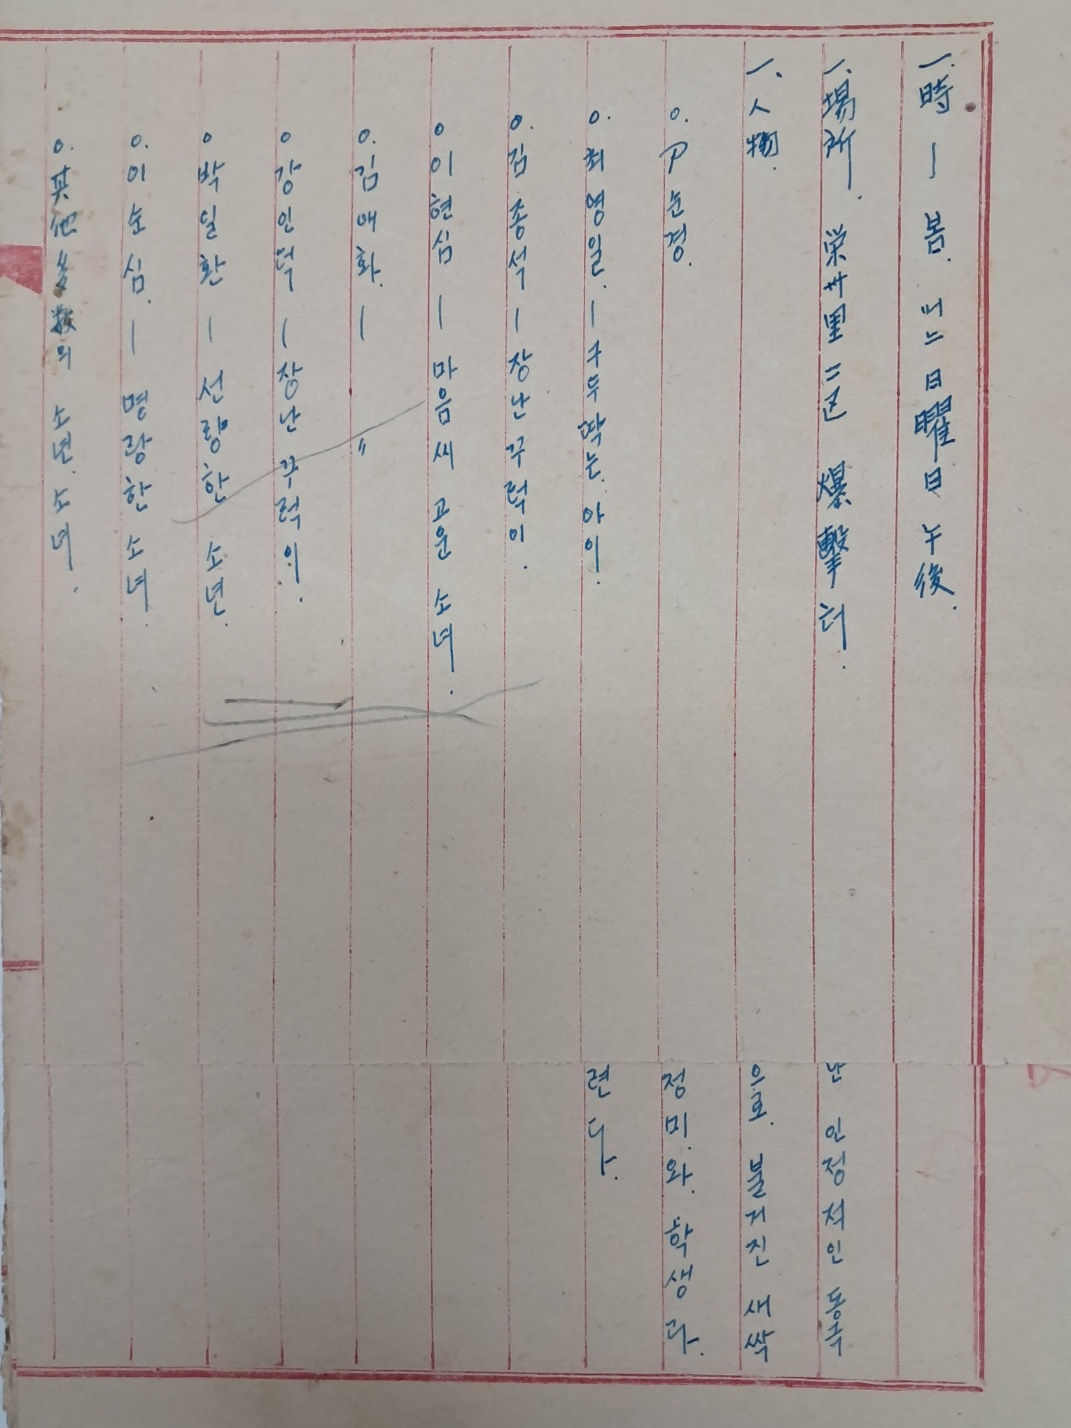 一. 時 — 봄. 어느 日曜日 午後.
一、場所. 栄州里 二区 爆撃터.
一、人物.
○. 尹순경.
○. 최영일. — 구두딱는 아이.
○. 김종석 — 장난꾸럭이.
○ 이현심 — 마음씨 고운 소녀.
○. 김애화. — 〃
○ 강인덕 — 장난꾸럭이.
○ 박일환 — 선량한 소년.
○. 이순심. — 명랑한 소녀.
○. 其他 多数의 소년. 소녀.
난 인정적인 동극
으로. 불거진 새싹
정미. 와. 학생과.
련다.